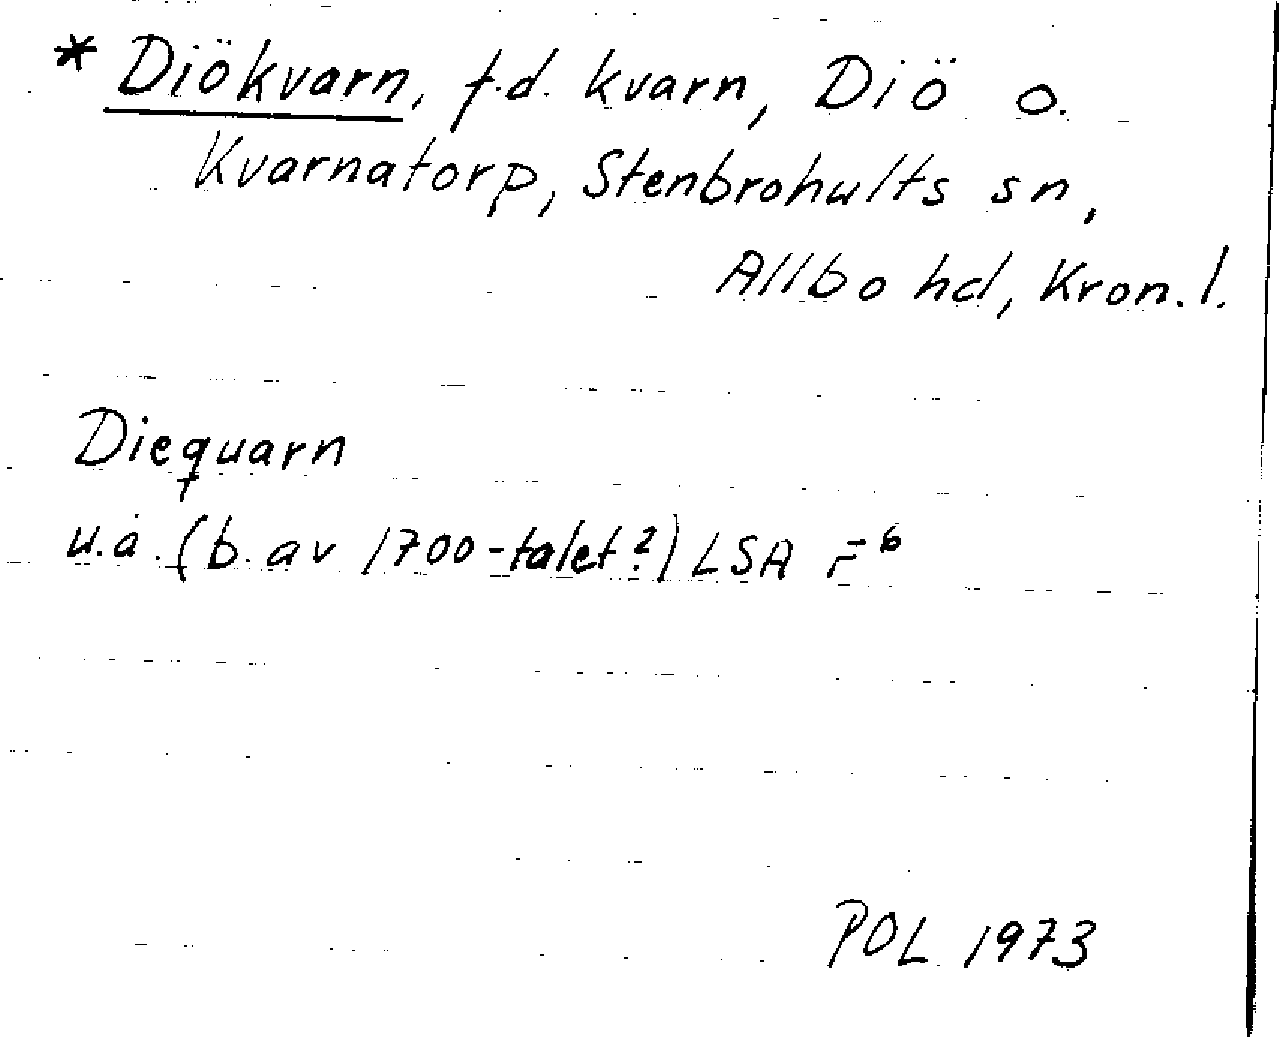 * Diökvarn, f.d. kvarn, Diö o.
Kvarnatorp, Stenbrohults sn,
Allbo hd, Kron. l.
Diequarn
u.å. (b. av 1700-talet?) LSA F⁶
POL 1973